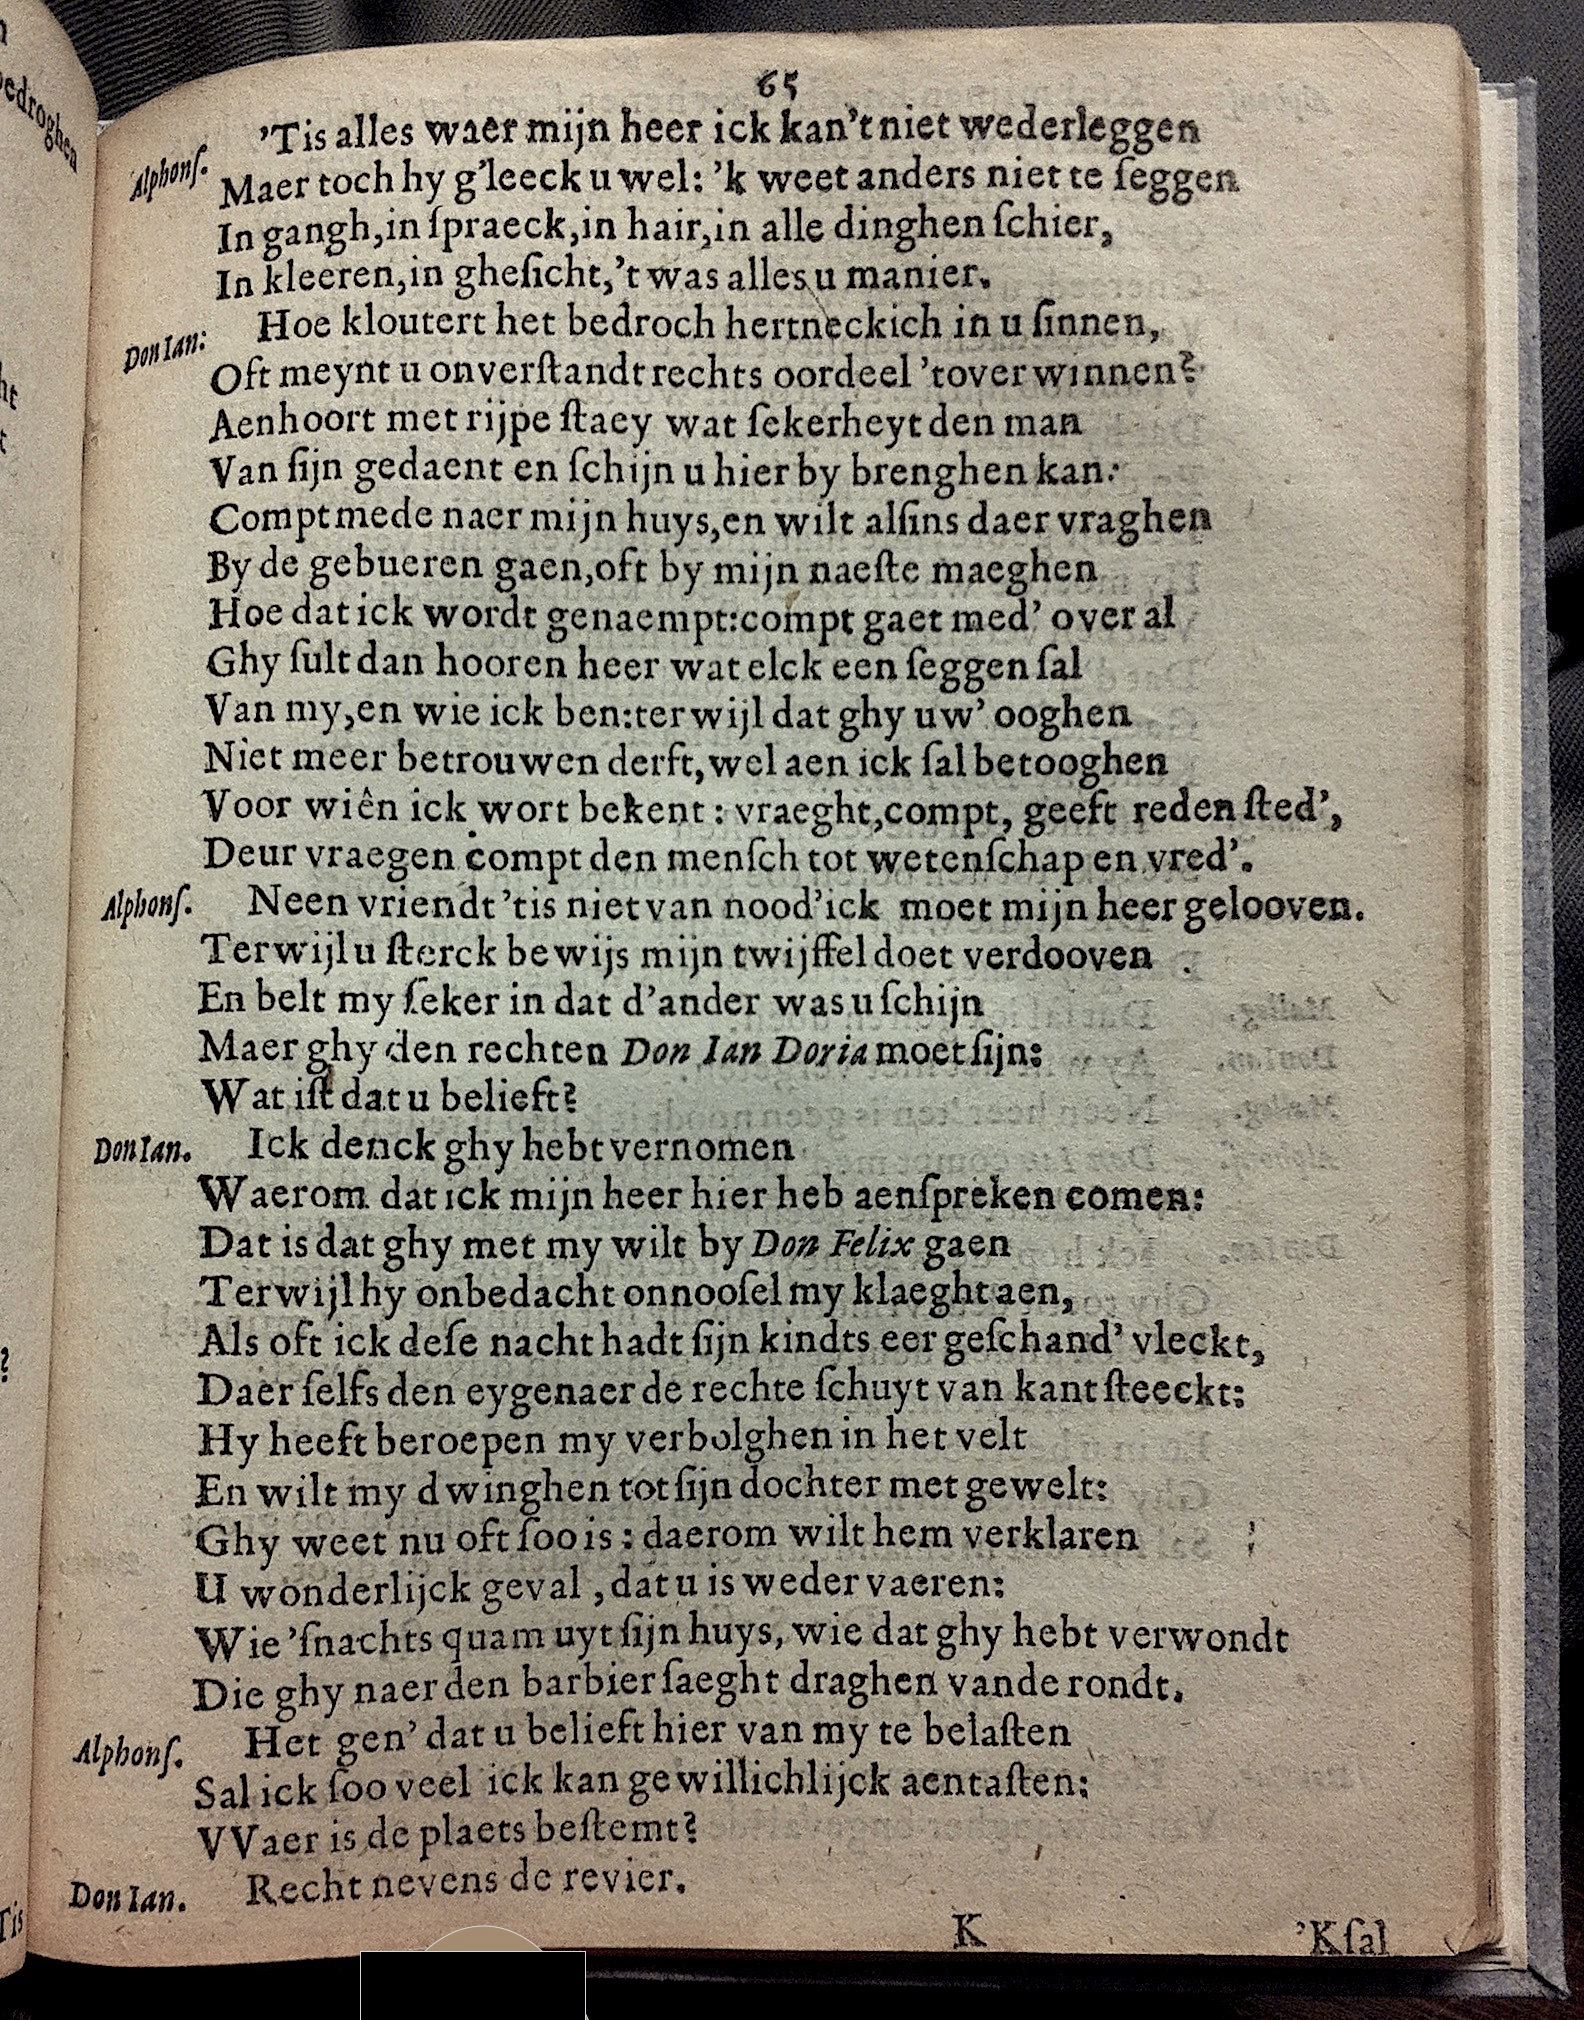 65
Alphonſ. 'Tis alles waer mijn heer ick kan't niet wederleggen
Maer toch hy g'leeck u wel: 'k weet anders niet te ſeggen
In gangh, in ſpraeck, in hair, in alle dinghen ſchier,
In kleeren, in gheſicht, 't was alles u manier.
Don Ian: Hoe kloutert het bedroch hertneckich in u ſinnen,
Oft meynt u onverſtandt rechts oordeel 'tover winnen?
Aenhoort met rijpe ſtaey wat ſekerheyt den man
Van ſijn gedaent en ſchijn u hier by brenghen kan:
Compt mede naer mijn huys, en wilt alſins daer vraghen
By de gebueren gaen, oft by mijn naeſte maeghen
Hoe dat ick wordt genaempt: compt gaet med' over al
Ghy ſult dan hooren heer wat elck een ſeggen ſal
Van my, en wie ick ben: terwijl dat ghy uw' ooghen
Niet meer betrouwen derft, wel aen ick ſal betooghen
Voor wiên ick wort bekent: vraeght, compt, geeft reden ſted',
Deur vraegen compt den menſch tot wetenſchap en vred'.
Alphonſ. Neen vriendt 'tis niet van nood' ick moet mijn heer gelooven.
Terwijl u ſterck bewijs mijn twijffel doet verdooven
En belt my ſeker in dat d'ander was u ſchijn
Maer ghy den rechten Don Ian Doria moet ſijn:
Wat iſt dat u belieft?
Don Ian. Ick denck ghy hebt vernomen
Waerom dat ick mijn heer hier heb aenſpreken comen:
Dat is dat ghy met my wilt by Don Felix gaen
Terwijl hy onbedacht onnooſel my klaeght aen,
Als oft ick deſe nacht hadt ſijn kindts eer geſchand' vleckt,
Daer ſelfs den eygenaer de rechte ſchuyt van kant ſteeckt:
Hy heeft beroepen my verbolghen in het velt
En wilt my dwinghen tot ſijn dochter met gewelt:
Ghy weet nu oft ſoo is: daerom wilt hem verklaren
U wonderlijck geval, dat u is weder vaeren:
Wie 'ſnachts quam uyt ſijn huys, wie dat ghy hebt verwondt
Die ghy naer den barbier ſaeght draghen vande rondt.
Alphonſ. Het gen' dat u belieft hier van my te belaſten
Sal ick ſoo veel ick kan gewillichlijck aentaſten:
VVaer is de plaets beſtemt?
Don Ian. Recht nevens de revier.
K 'K ſal